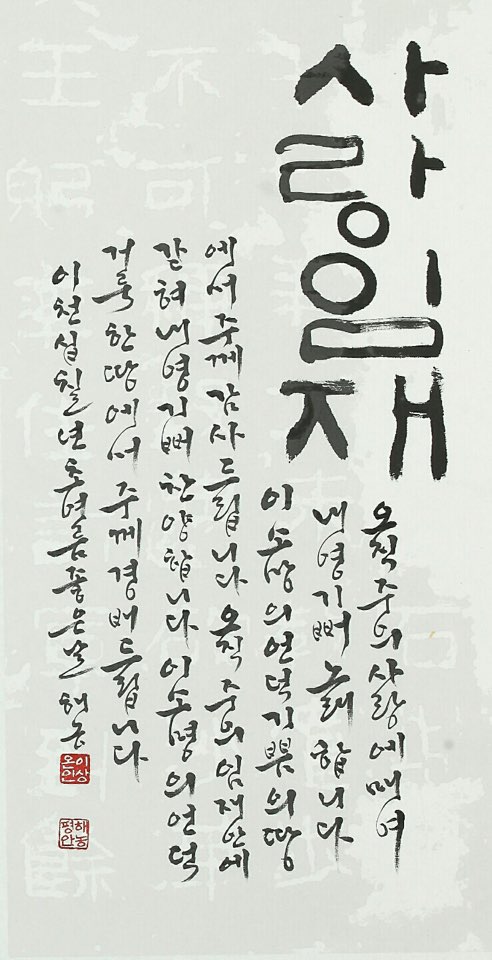 사랑임재
오직 주의 사랑에 매여
내 영 기뻐 노래합니다
이 소망의 언덕 기쁨의 땅
에서 주께 감사드립니다 오직 주의 임재 안에
갇혀 내 영 기뻐 찬양합니다 이 소명의 언덕
거룩한 땅에서 주께 경배드립니다
이천십칠년 초여름 좋은날 해농
이상
온인
해농
평안